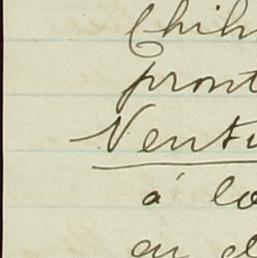 Chih
pront
Ventu
á lo
au d